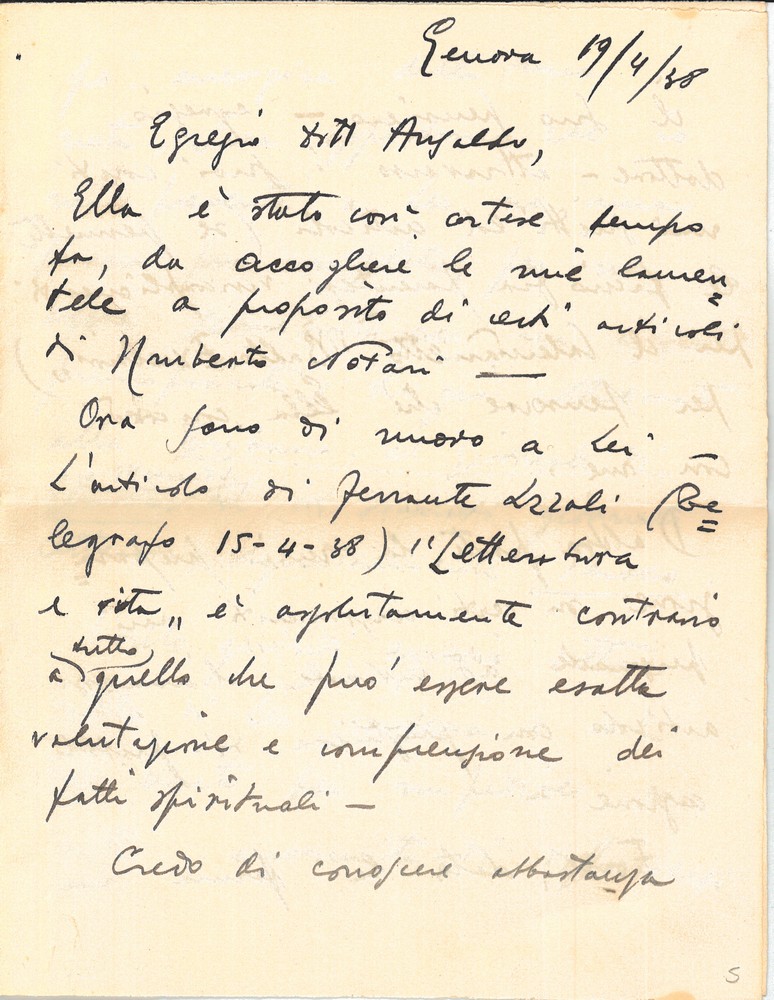 Genova 19/4/38
Egregio dott Ansaldo,
Ella è stato così cortese tempo
fa, da accogliere le mie lamen=
tele a proposito di certi articoli
di Umberto Notari —
Ora sono di nuovo a Lei —
L'articolo di Ferrante Azzali (Te=
legrafo 15-4-38) "Letteratura
e vita" è assolutamente contrario
a tutto quello che può essere esatta
valutazione e comprensione dei
fatti spirituali —
Credo di conoscere abbastanza
5